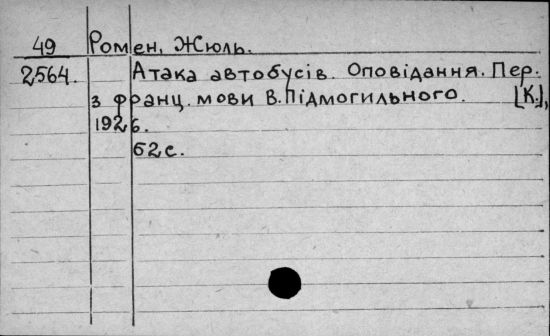 49 Ромен, Жюль.
2564. Атака автобусів. Оповідання. Пер.
з франц. мови В. Підмогильного. [К.],
1926.
62 с.